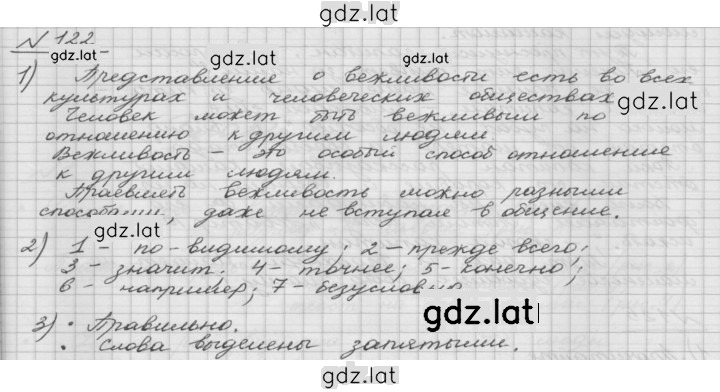 gdz.lat
№ 122
gdz.lat
gdz.lat
1) Представление о вежливости есть во всех
культурах и человеческих обществах
gdz.lat
Человек может быть вежливым по
отношению к другим людям.
Вежливость – это особый способ отношение
к другим людям.
Проевлять вежливость можно разными
способами, даже не вступая в общение.
gdz.lat
2) 1 – по-видимому; 2 – прежде всего;
3 – значит. 4 – точнее; 5 – конечно;
6 – например; 7 – безусловно
gdz.lat
3) • Правильно.
• Слова выделены запятыми.
gdz.lat